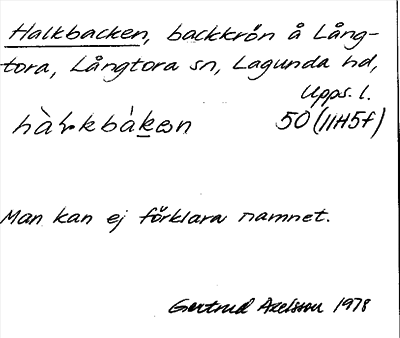 Halkbacken, backkrön å Lång-
tora, Långtora sn, Lagunda hd,
Upps. l.
50 (11H5f)
Man kan ej förklara namnet.
Gertrud Axelsson 1978